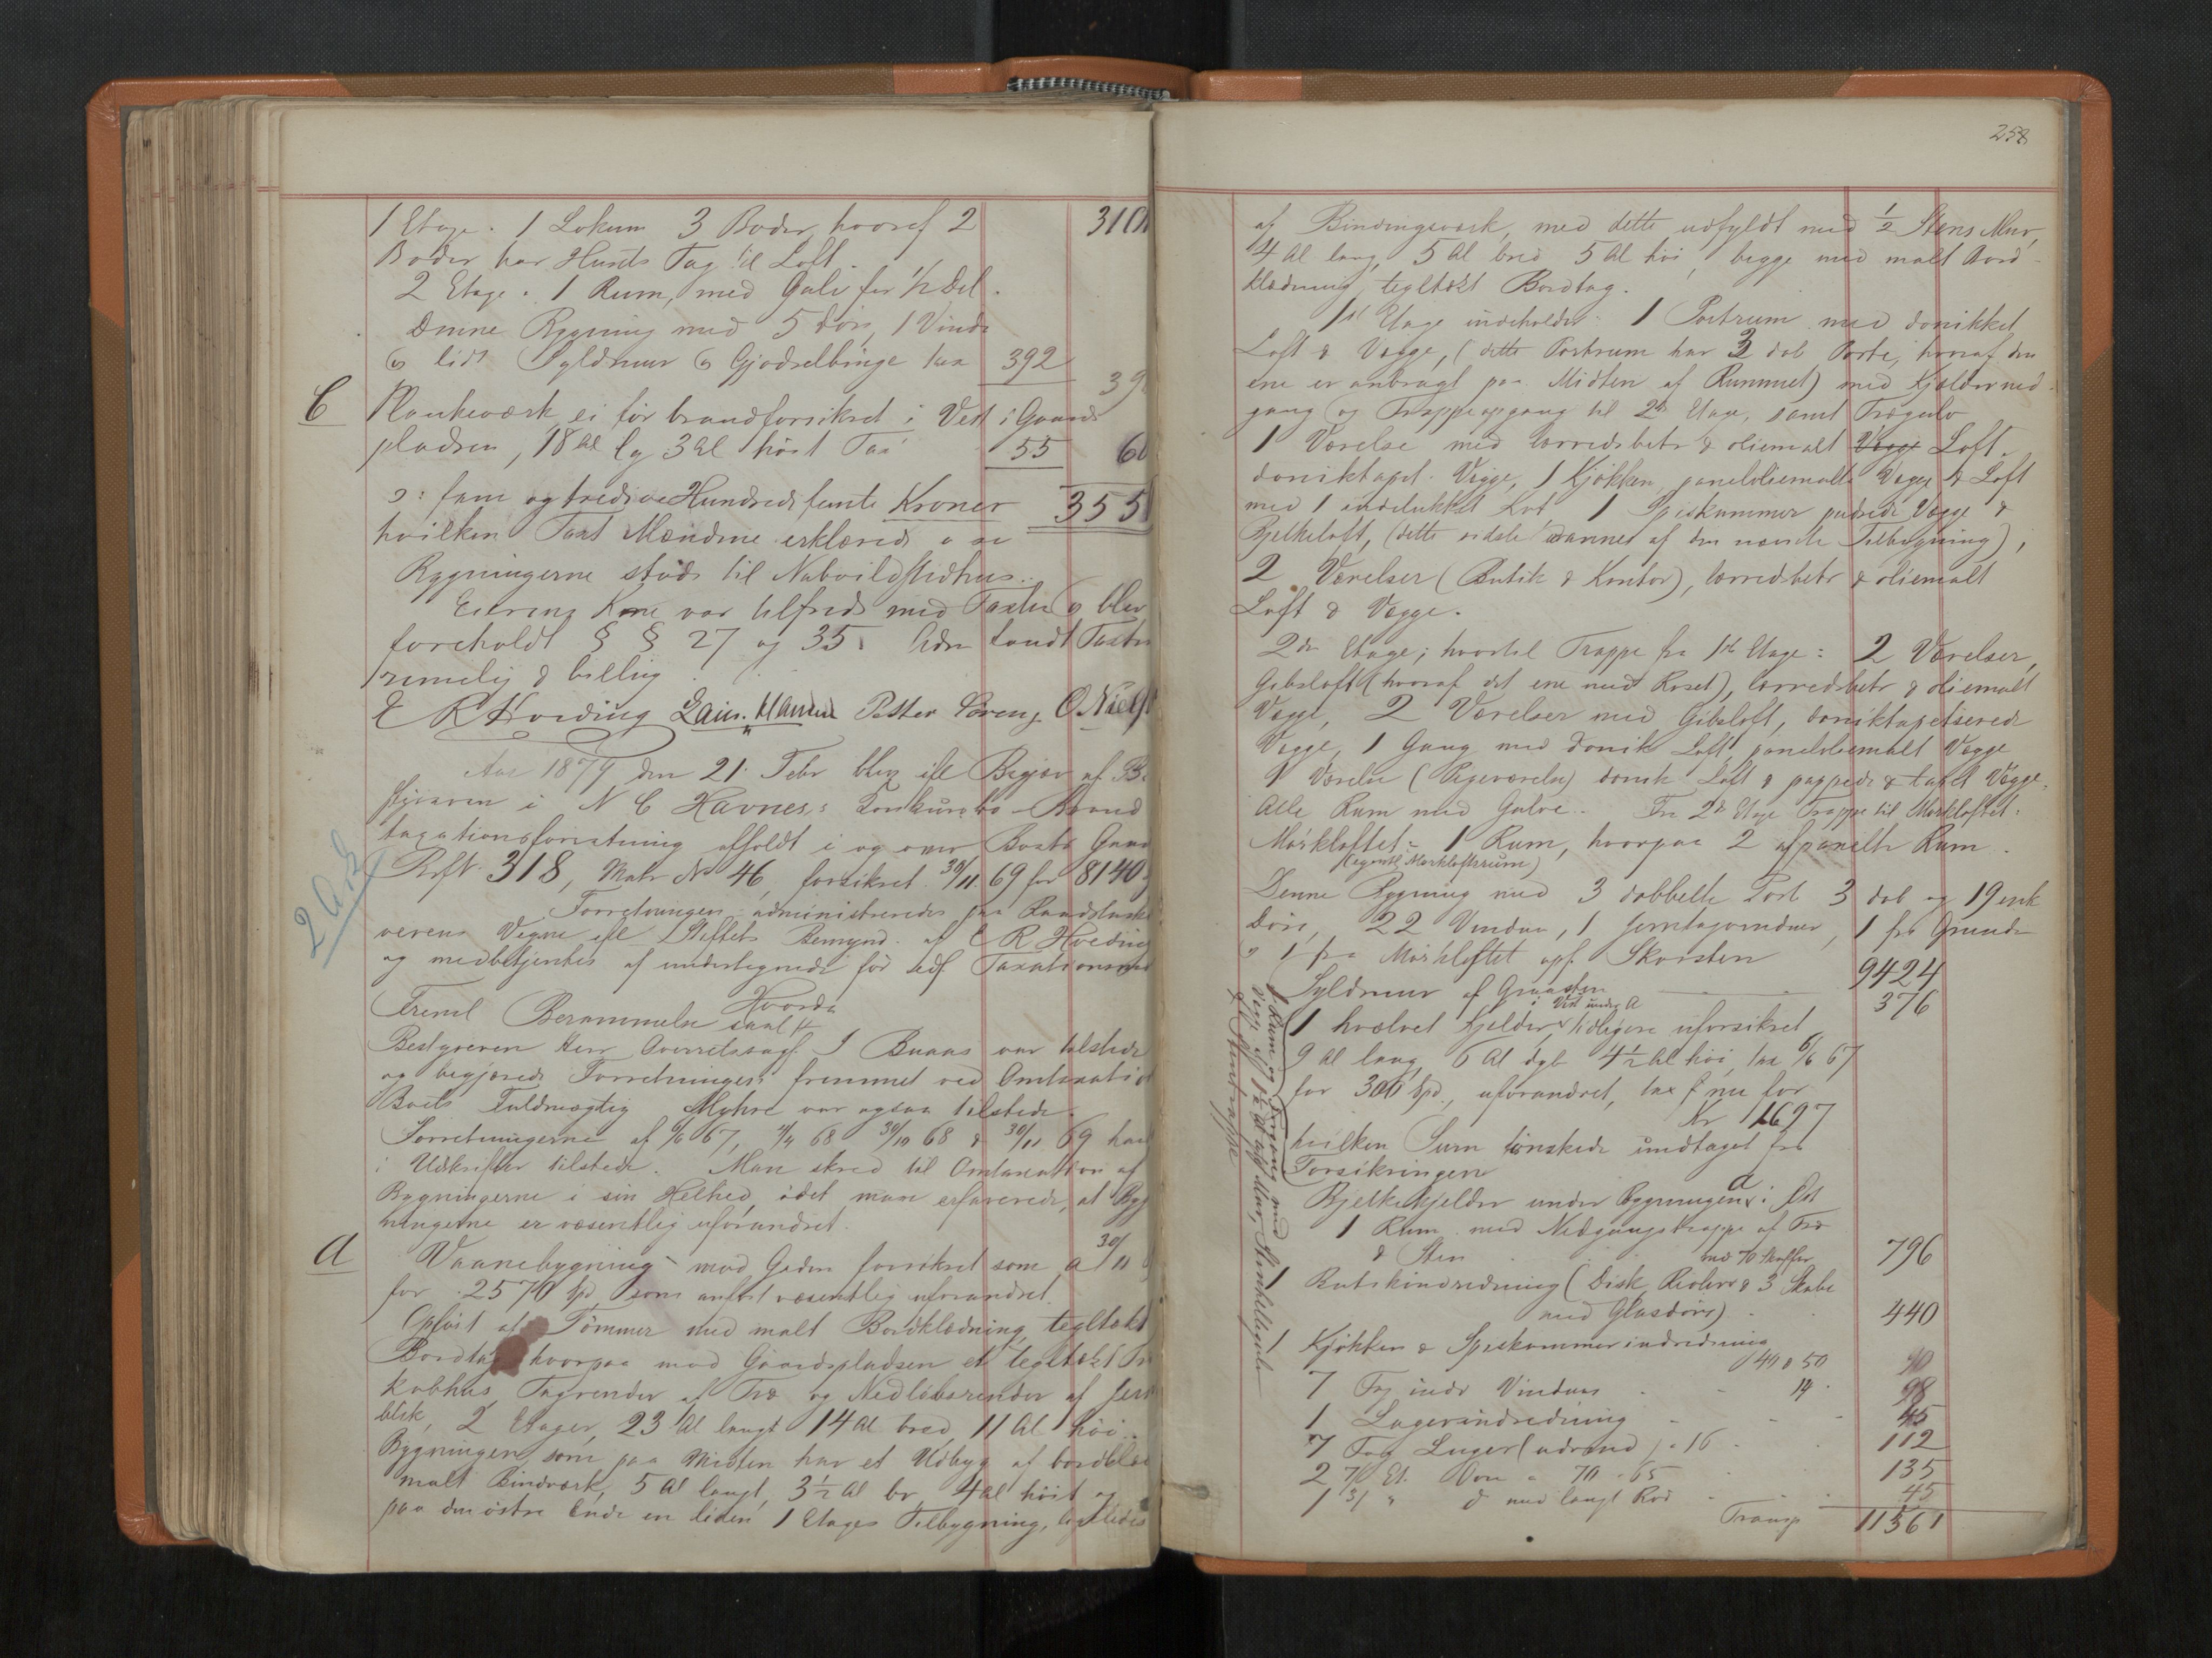 1 Etage. 1 Lokum 3 Boder, hvoraf 2 310
Boder har Hunts Tag til Loft.
2 Etage. 1 Rum, med Gulv for 1/2 Del.
Denne Bygning med 5 Dør, 1 Vindu
& lidt Syldmur & Gjødselbinge tax 392
39
C Plankeværk, ei før brandforsikret i Vest i Gaards
pladsen, 18 Al lg 3 Al høit Tax 55 60
ɔ: fem og tredive Hundrede femti Kroner 355
hvilken Taxt Mændene erklærede
Bygningerne støde til Nabovildstedhus.
Eierens Kone var tilfreds med Taxten & blev
foreholdt § § 27 og 35. Adm fandt Taxten
rimelig & billig
E R Hvoding Laur. Hansen Petter Sørens. O. Niels
Aar 1879 den 21. Febr blev efter Begjær af Be
styreren i N C Havnes's Konkursbo Brand
taxationsforretning afholdt i og over Boets Gaard
Rf N. 318, Matr No 46, forsikret 30/11 69 for 8140
Forretningen administreredes paa Raadstueskri
verens Vegne efter Stiftets Bemynd. af E R Hvoding
og medbetjentes af undertegnede før edf. Taxationsmænd
2 Udsk
Hvorda
Freml Berammelse saal #
Bestyreren Herr Overretssagf. J Buaas var tilstede
og begjærede Forretningen fremmet ved Omtaxation
Boets Fuldmægtig Myhre var ogsaa tilstede.
Forretningerne af 6/6 67, 4/4 68 30/10 68 & 30/11 69 hav
i Udskrifter tilstede. Man skred til Omtaxation af
Bygningerne i sin Helhed, idet man erfarede, at Byg
ningerne er væsentlig uforandret.
A Vaanebygning mod Gaden forsikret som a 30/11
for 2570 Spd som anført væsentlig uforandret.
Opført af Tømmer med malt Bordklædning, tegltækt
Bordtag hvorpaa mod Gaardspladsen et tegltækt
kobhus, Tagrender af Træ og Nedløbsrender af Jern
blik, 2 Etager, 23 Al langt 14 Al bred, 11 Al høi.
Bygningen, som paa Midten har et Udbyg af bordklæ
malt Bindværk, 5 Al langt, 3½ Al br, 4 Al høit og
paa den østre Ende en liden 1 Etages Tilbygning, ligeledes
258
af Bindingsværk, med dette udfyldt med ½ Stens Mur,
4 Al lang, 5 Al bred 5 Al høi, begge med malt Bord
klædning, tegltækt Bordtag.
1st Etage indeholder: 1 Portrum med donikket
Loft & Vægge, (dette Portrum har 3 dob Porte, hvoraf den
ene er anbragt paa Midten af Rummet) med Kjeldernedgang
og Trappeopgang til 2den Etage, samt Trægulv
1 Værelse med lærredsbetr & oliemalt Vægge Loft.
doniktapet. Vægge, 1 Kjøkken, paneloliemalte Vægge & Loft
med 1 indelukket Rot 1 Spiskammer pudsede Vægge &
Bjelkeloft, (dette sidste dannet af den nævnte Tilbygning),
2 Værelser (Butik & Kontor), lærredsbetr & oliemalt
Loft & Vægge.
2den Etage; hvortil Trappe fra 1st Etage: 2 Værelser,
Gibsloft (hvoraf det ene med Roset), lærredsbetr & oliemalt
Vægge, 2 Værelser med Gibsloft, doniktapetserede
Vægge, 1 Gang med donik Loft, paneloliemalt Vægge
1 Værelse (Pigeværelse) donik Loft & pappede & taxt Vægge.
Alle Rum med Gulve. Fra 2den Etage Trappe til Mørkloftet.
Mørkloftet = 1 Rum, hvorpaa 2 afpanelte Rum.
(egentl. Mørkloftsrum)
Denne Bygning med 3 dobbelte Port 3 dob og 19 enk
Døre, 22 Vinduer, 1 Jerntagvindue, 1 fra Grunde
& 1 fra Mørkloftet opf. Skorsten 9424
Syldmur af Graasten 376
i Vest under A
1 hvælvet Kjelder, tidligere uforsikret
9 Al lang, 6 Al dyb 4½ Al høi, tax 6/6 67
for 300 Spd., uforandret, tax f nu for
Kr 1697
hvilken Sum ønskede undtaget fra
Forsikringen
Bjelkekjelder under Bygningen A i Øst
1 Rum med Nedgangstrappe af Træ
& Sten 796
med 70 Skuffer
1 Butikindredning (Disk, Reoler & 3 Skabe
med Glasdøre) 440
1 Kjøkken & Speskammerindredning
40 & 50 90
7 Fag indv Vinduer 14 98
1 Lagerindredning 45
7 Fag Luger (udvend) a 16 112
2 Et. Ovne a 70 & 65 135
1 3/ " d med langt Rør 45
Transp 11561